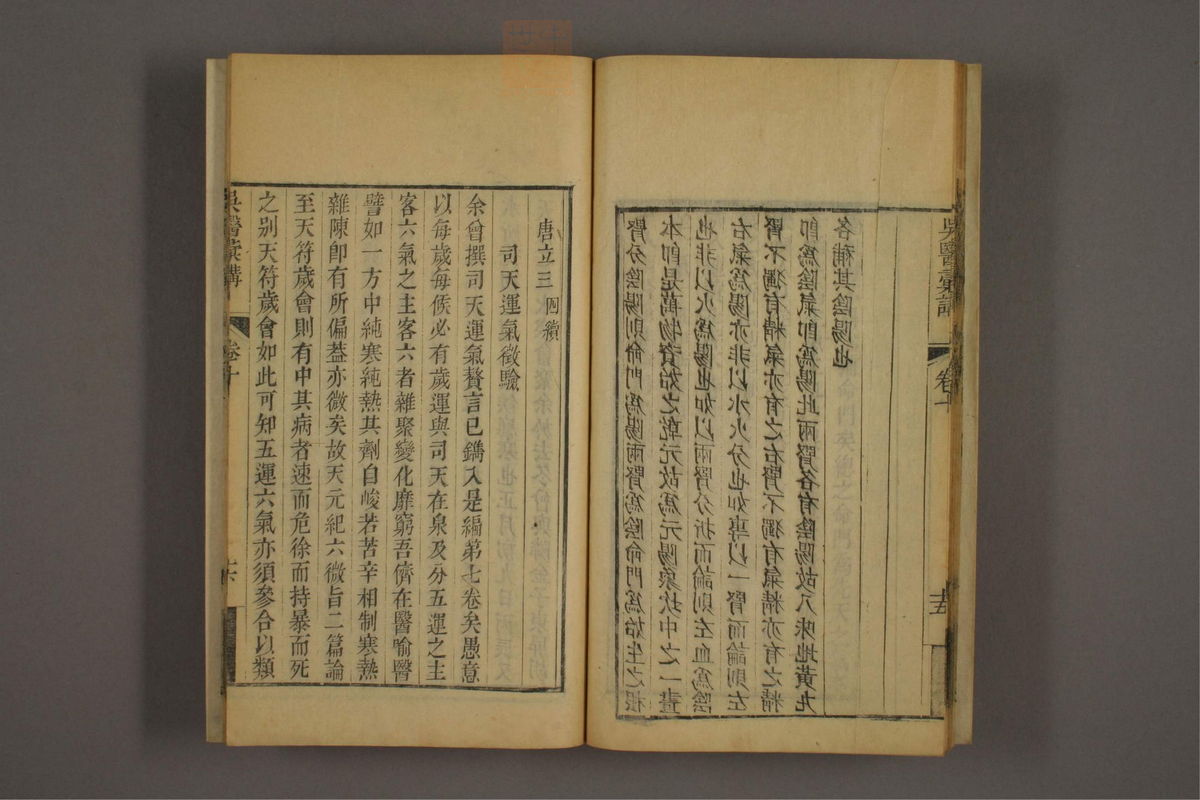 腎分陰陽則命門爲陽兩腎爲陰命門爲始生之根
本卽是萬物資始之乾元故爲元陽象坎中之一畫
也非以火爲陽也如以兩腎分折而論則左血爲陰
右氣爲陽亦非以水火分也如專以一腎而論則左
腎不獨有精氣亦有之右腎不獨有氣精亦有之精
卽爲陰氣卽爲陽此兩腎各有陰陽故八味地黃丸
各補其陰陽也
吳醫彙講 卷十 十五
唐立三 四續
司天運氣徵驗
余曾撰司天運氣贅言已鐫入是編第七卷矣愚意
以每歲每候必有歲運與司天在泉及分五運之主
客六氣之主客六者雜聚變化靡窮吾儕在醫喻醫
譬如一方中純寒純熱其劑自峻若苦辛相制寒熱
雜陳卽有所偏葢亦微矣故天元紀六微旨二篇論
至天符歲會則有中其病者速而危徐而持暴而死
之别天符歲會如此可知五運六氣亦須參合以類
吳醫彙講 卷十 十六